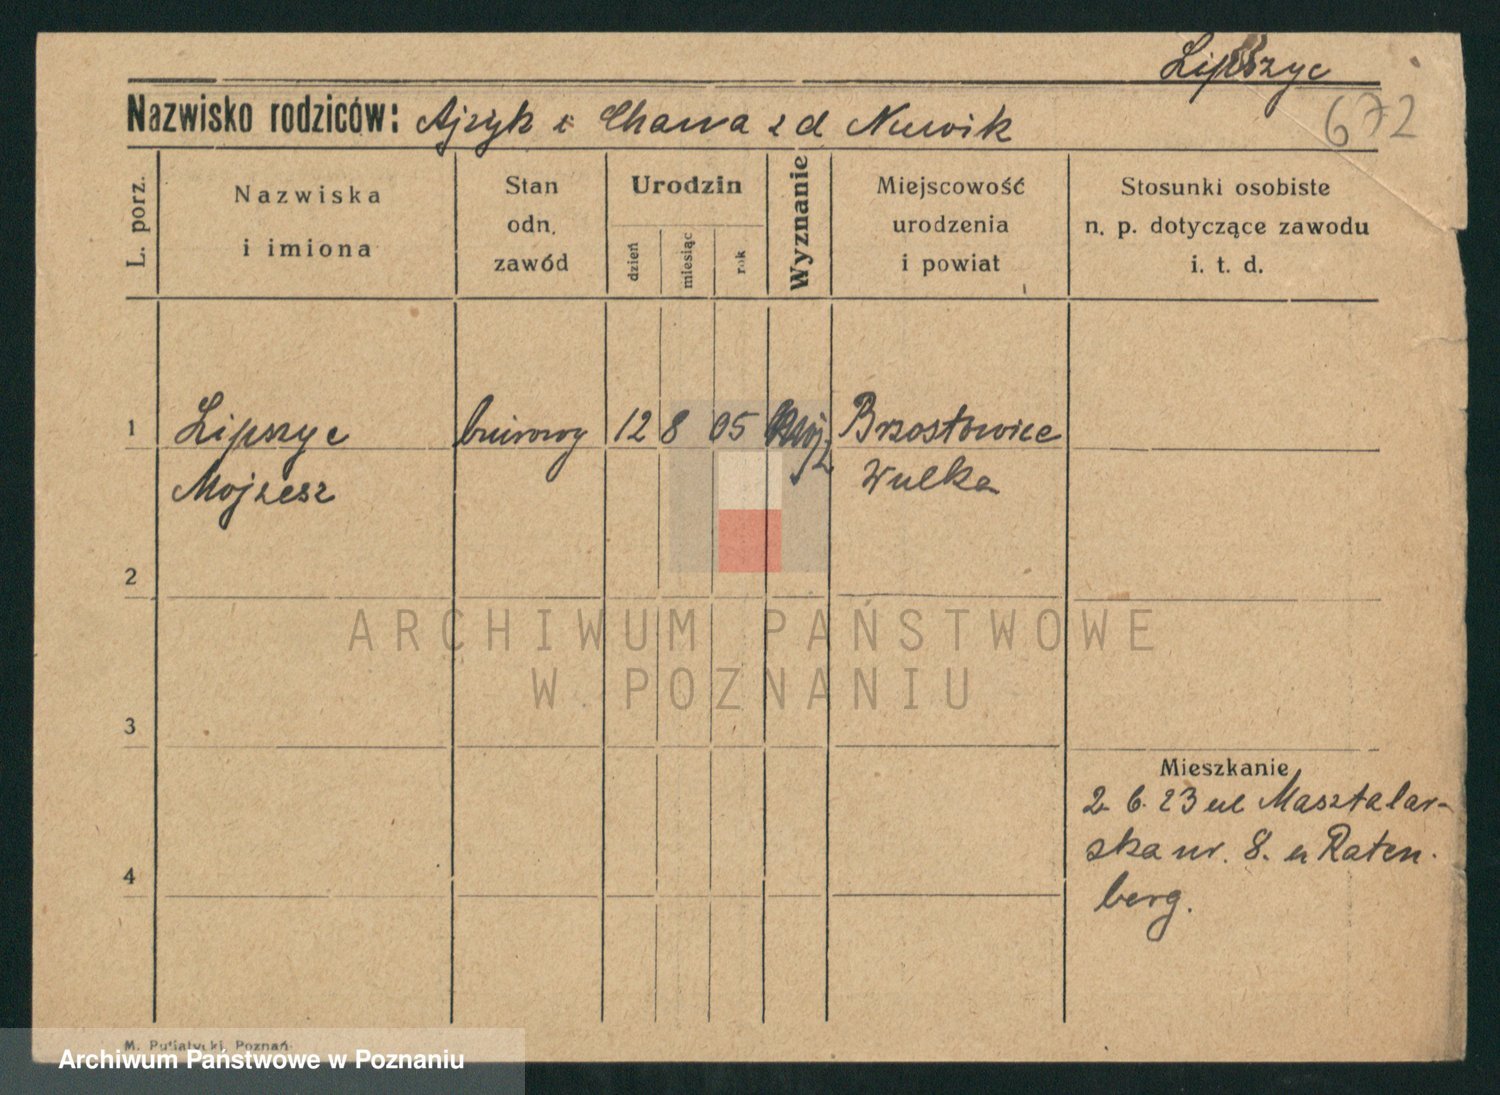 Lipszyc
672
Nazwisko rodziców: Ajzyk i Chawa z d Nuwik
L. porz.
Nazwiska
i imiona
Stan
odn.
zawód
Urodzin
dzień
miesiąc
rok
Wyznanie
Miejscowość
urodzenia
i powiat
Stosunki osobiste
n. p. dotyczące zawodu
i. t. d.
1 Lipszyc biurowy 12 8 05 Mojż Brzostowice
Mojżesz Wulka
2
3
4
Mieszkanie
2. 6. 23 ul Masztalar-
ska nr. 8. u Raten-
berg.
M. Putiatycki, Poznań
ARCHIWUM PAŃSTWOWE
W POZNANIU
Archiwum Państwowe w Poznaniu